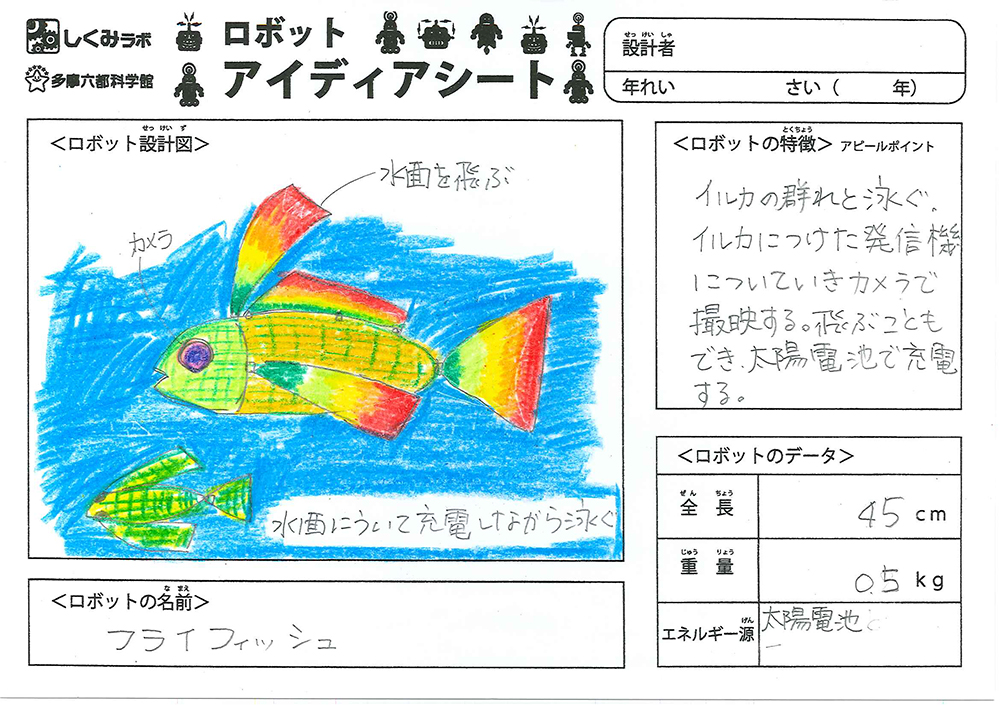 しくみラボ
多摩六都科学館
ロボット
アイディアシート
せっ けい しゃ
設計者
年れい さい（ 年）
せっ けい ず
＜ロボット設計図＞
水面を飛ぶ
カメラ
水面にういて充電しながら泳ぐ
な まえ
＜ロボットの名前＞
フライフィッシュ
とくちょう
＜ロボットの特徴＞ アピールポイント
イルカの群れと泳ぐ。
イルカにつけた発信機
についていきカメラで
撮映する。飛ぶことも
でき、太陽電池で充電
する。
＜ロボットのデータ＞
ぜん ちょう
全長 45 cm
じゅう りょう
重量 0.5 kg
げん
エネルギー源 太陽電池